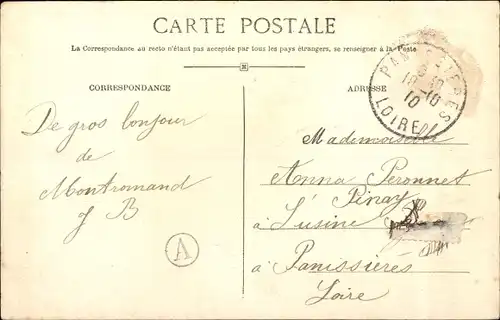 CARTE POSTALE
La Correspondance au recto n'étant pas acceptée par tous les pays étrangers, se renseigner à la Poste
CORRESPONDANCE
De gros bonjour
de
Montromand
J B
A
ADRESSE
LOIRE
10-10
10
Mademoiselle
Anna Peronnet
Pinay
à L'usine
à Panissières
Loire